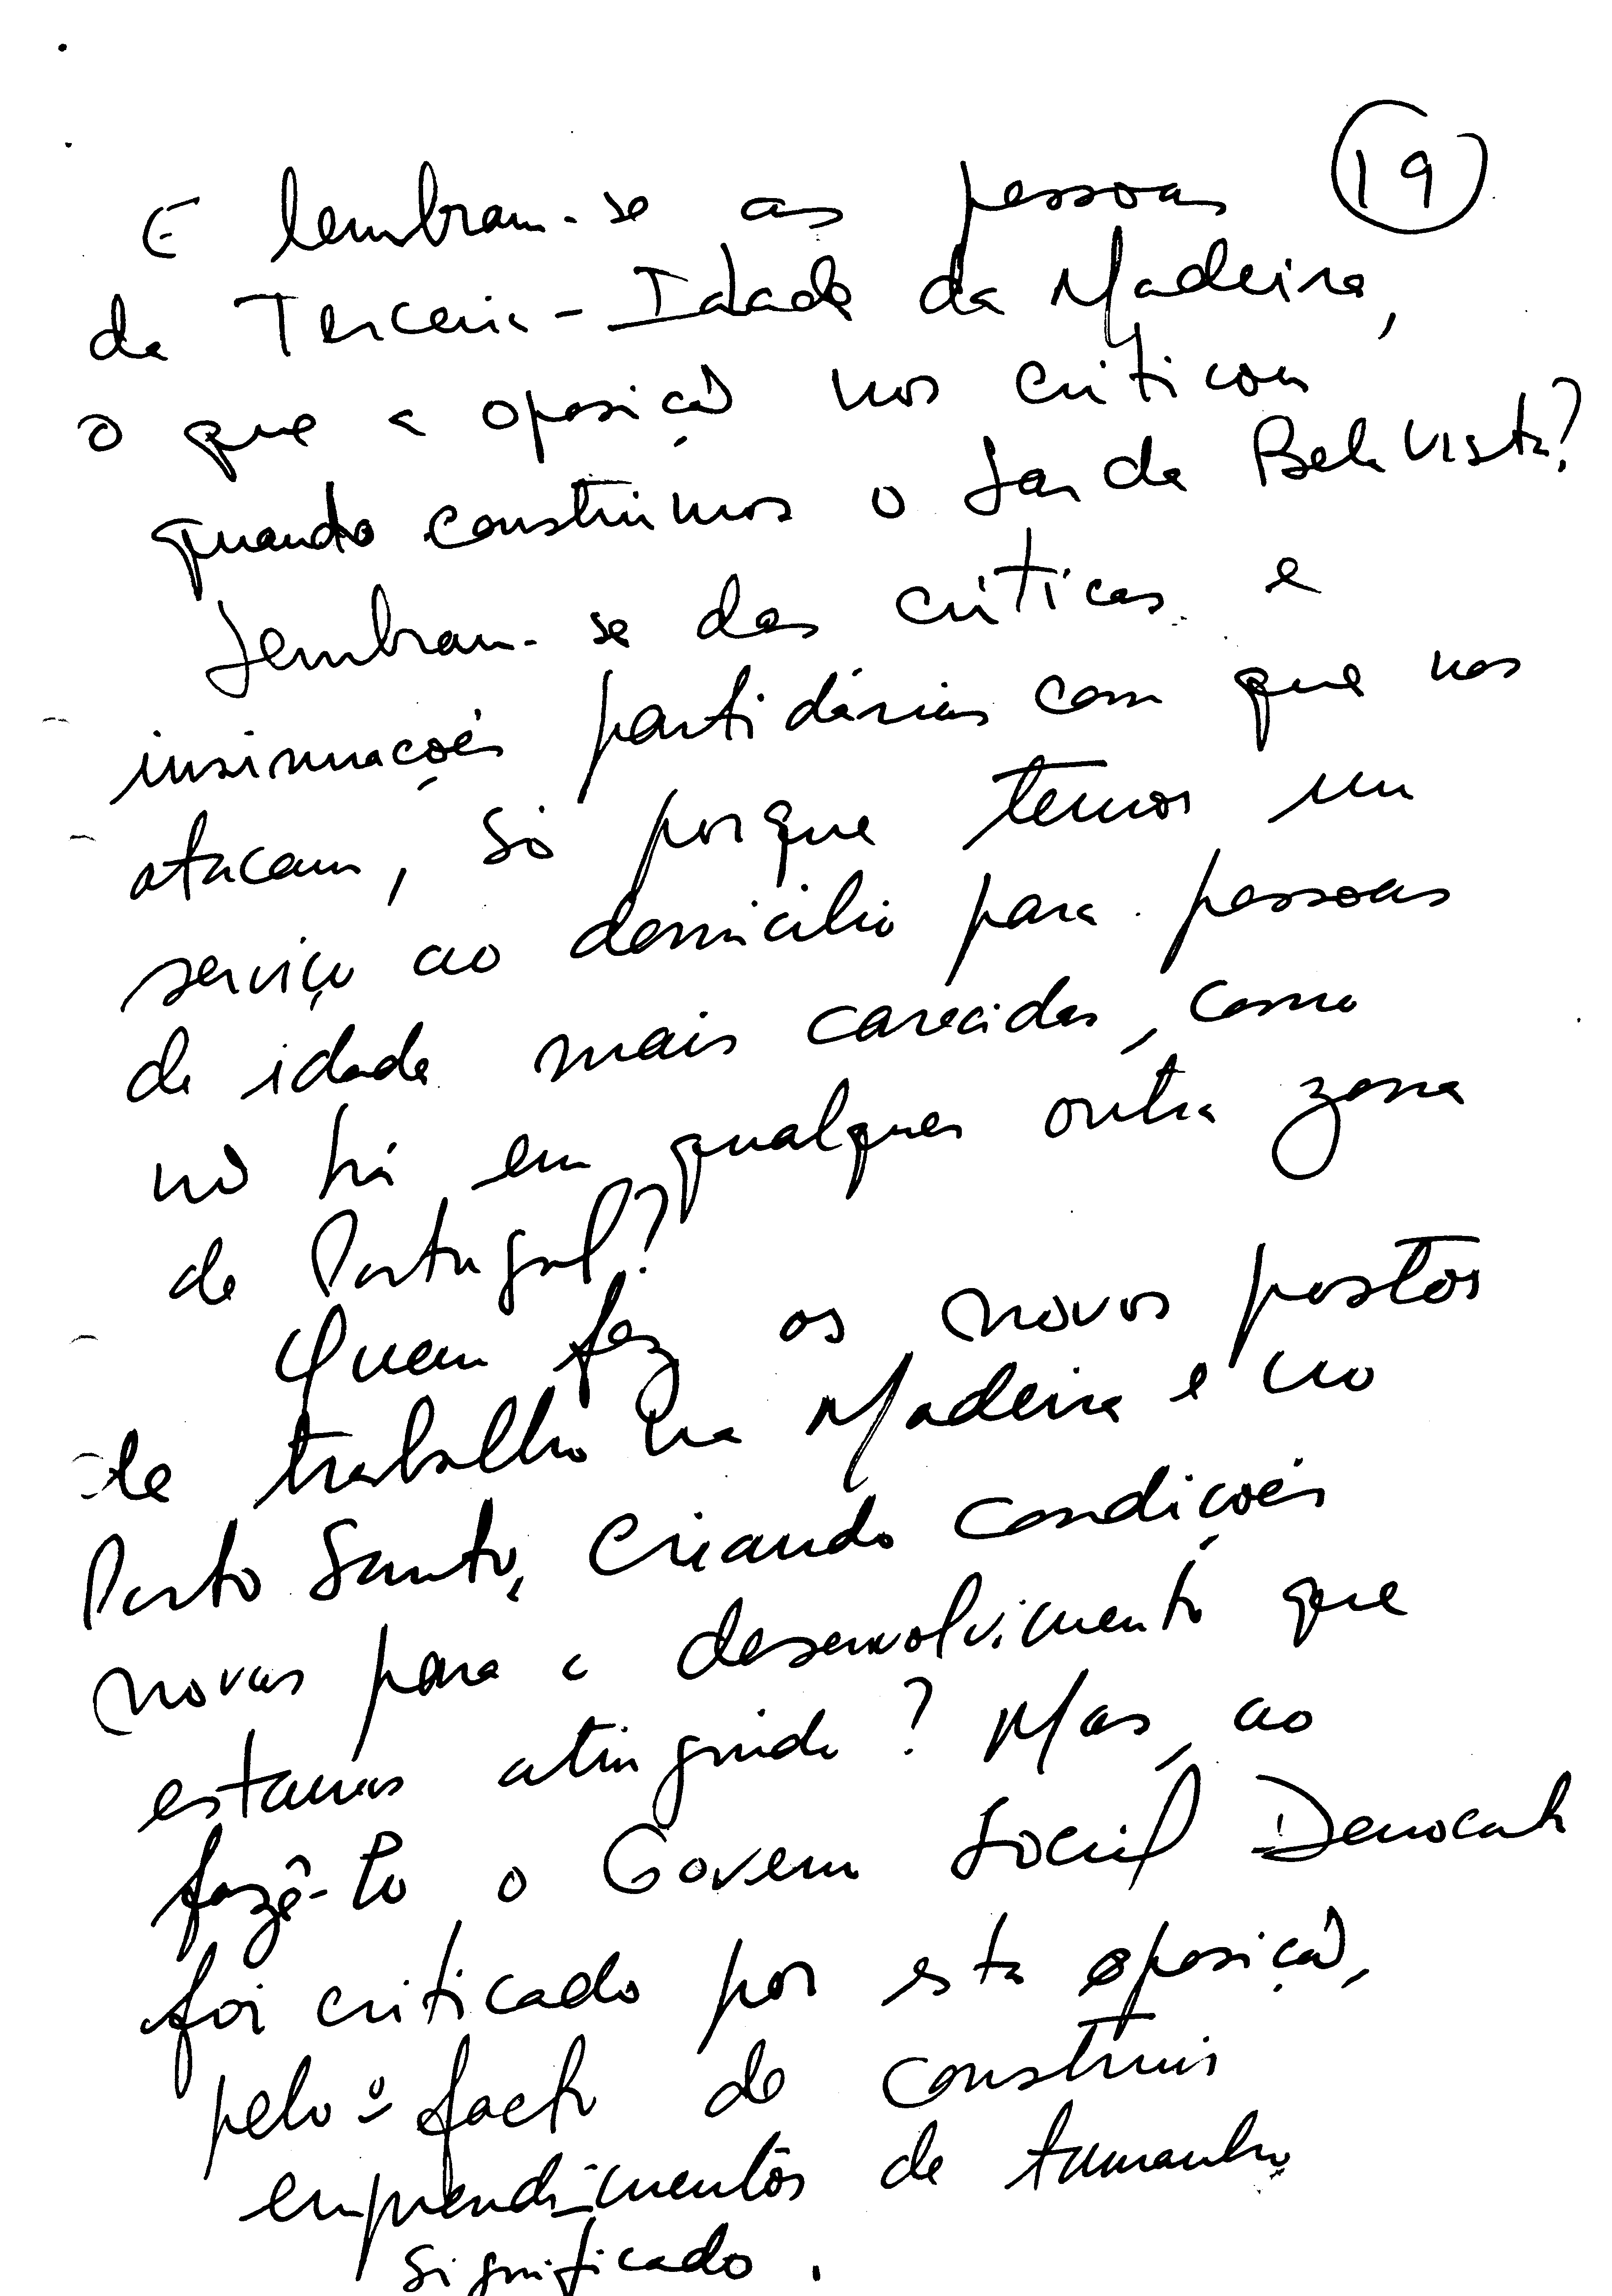 19
E lembram-se as pessoas
da Terceira-Idade da Madeira,
o que a oposição nos criticou
quando construímos o Lar da Bela Vista?
Lembram-se das críticas e
insinuações partidárias com que nos
atacam, só porque temos um
serviço ao domicílio para pessoas
de idade mais carecidas, como
não há em qualquer outra zona
de Portugal?
Quem fez os novos postos
de trabalho na Madeira e no
Porto Santo, criando condições
novas para o desenvolvimento que
estamos atingindo? Mas, ao
fazê-lo o Governo Social Democrata
foi criticado por esta oposição,
pelo facto de construir
emprendimentos de tamanho
significado.